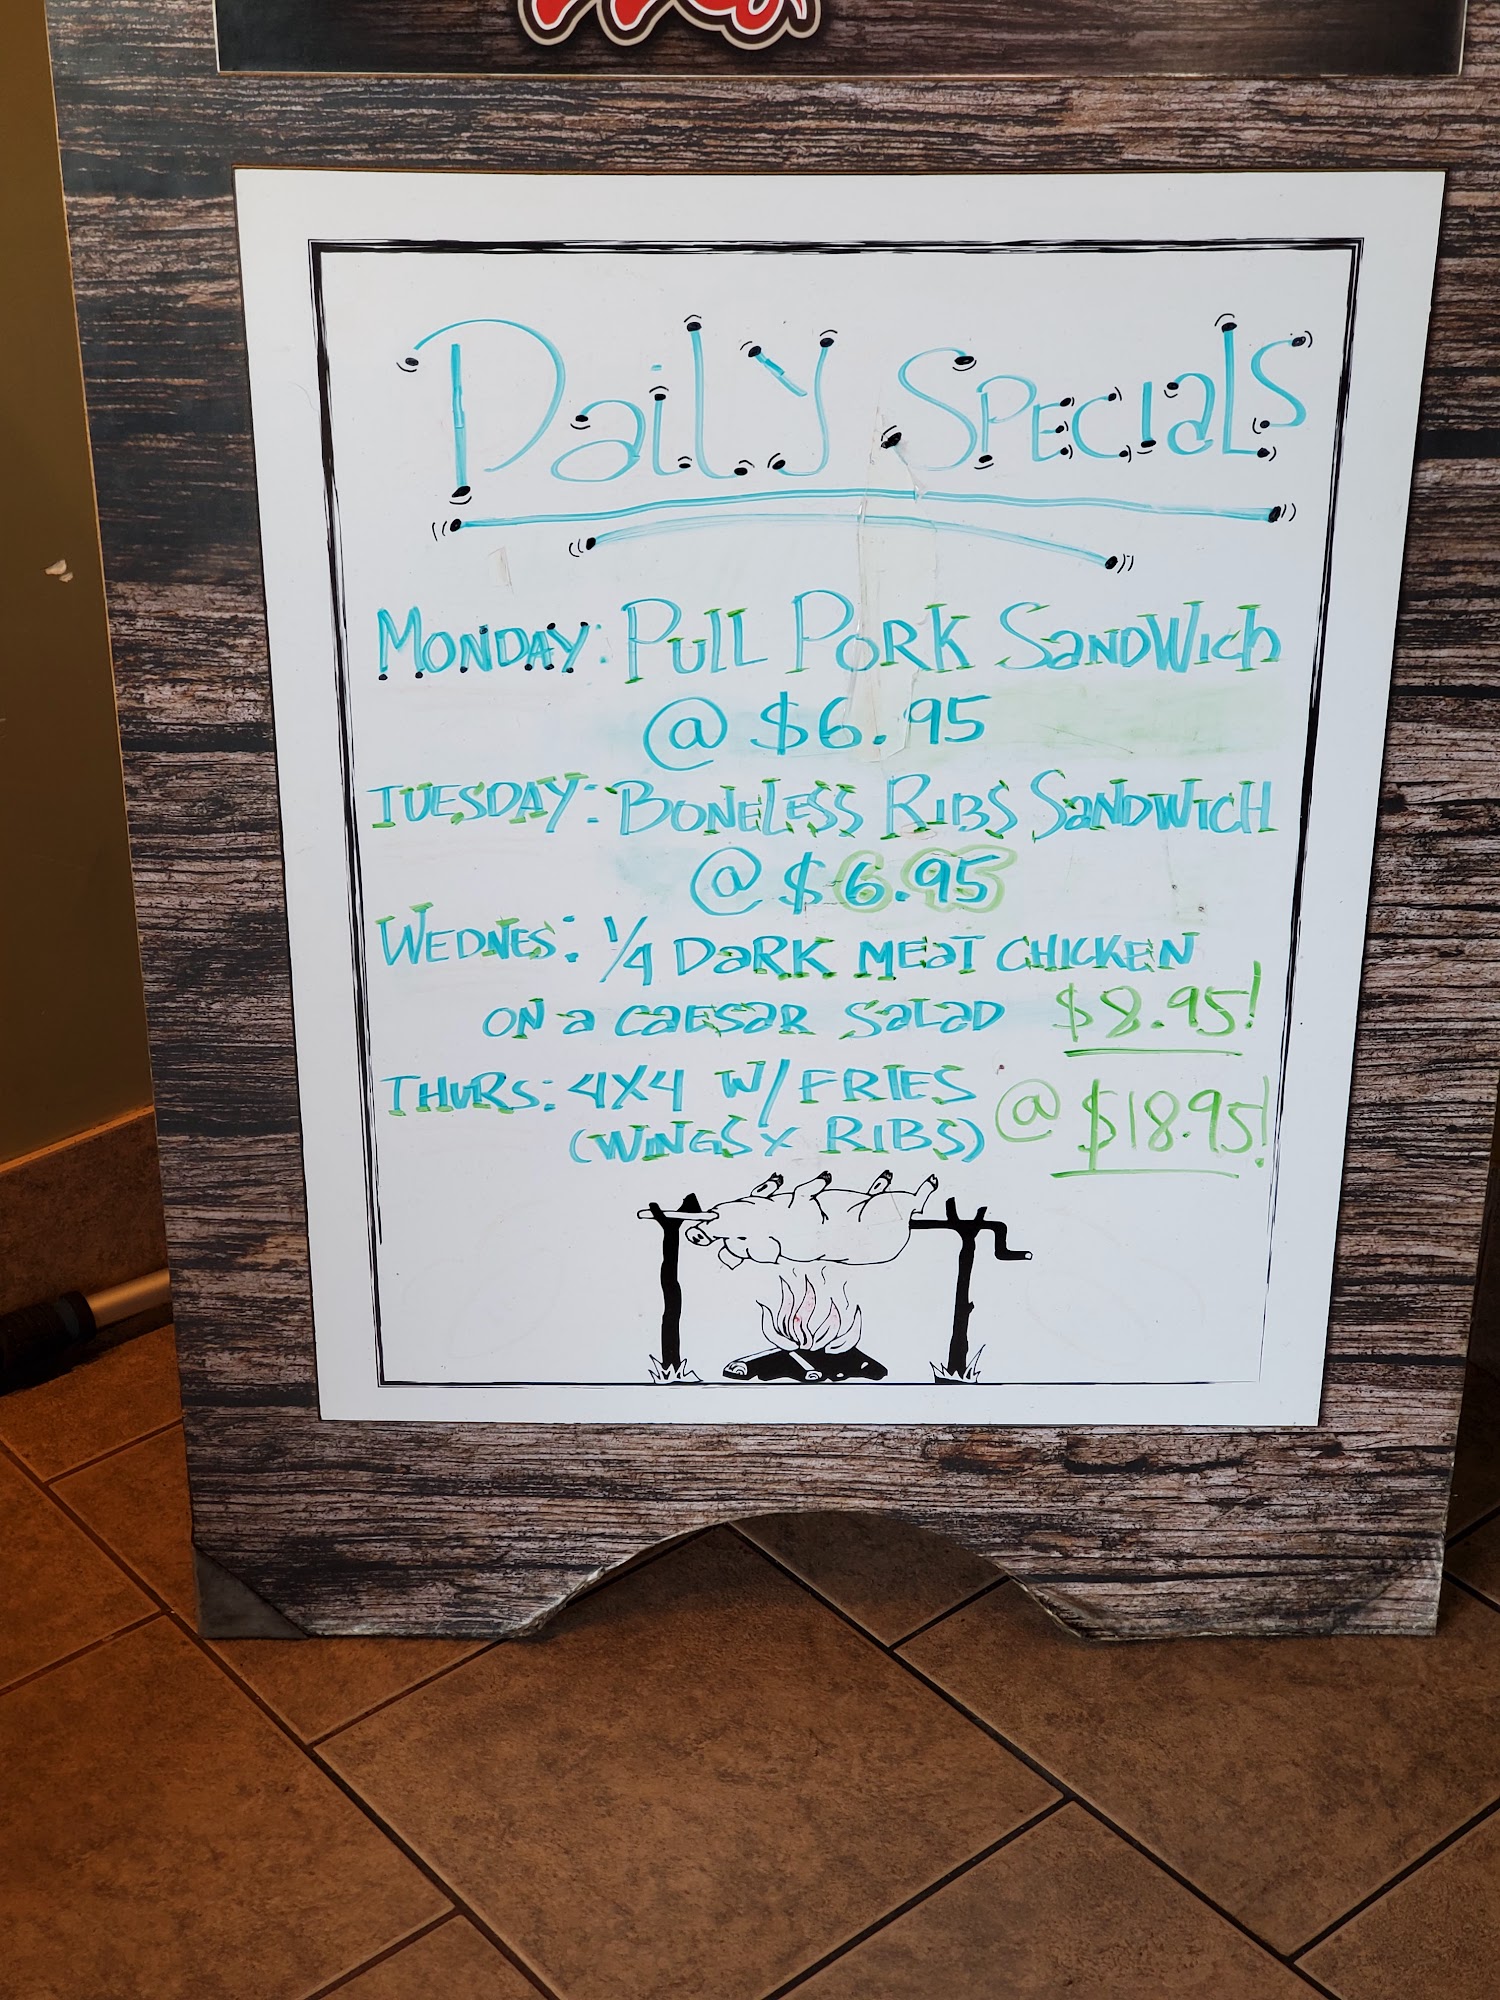 Daily Specials
Monday: Pull Pork Sandwich
@ $6.95
Tuesday: Boneless Ribs Sandwich
@ $6.95
Wednes: 1/4 Dark Meat Chicken
on a Caesar Salad $8.95!
Thurs: 4x4 w/ Fries @ $18.95!
(Wings x Ribs)